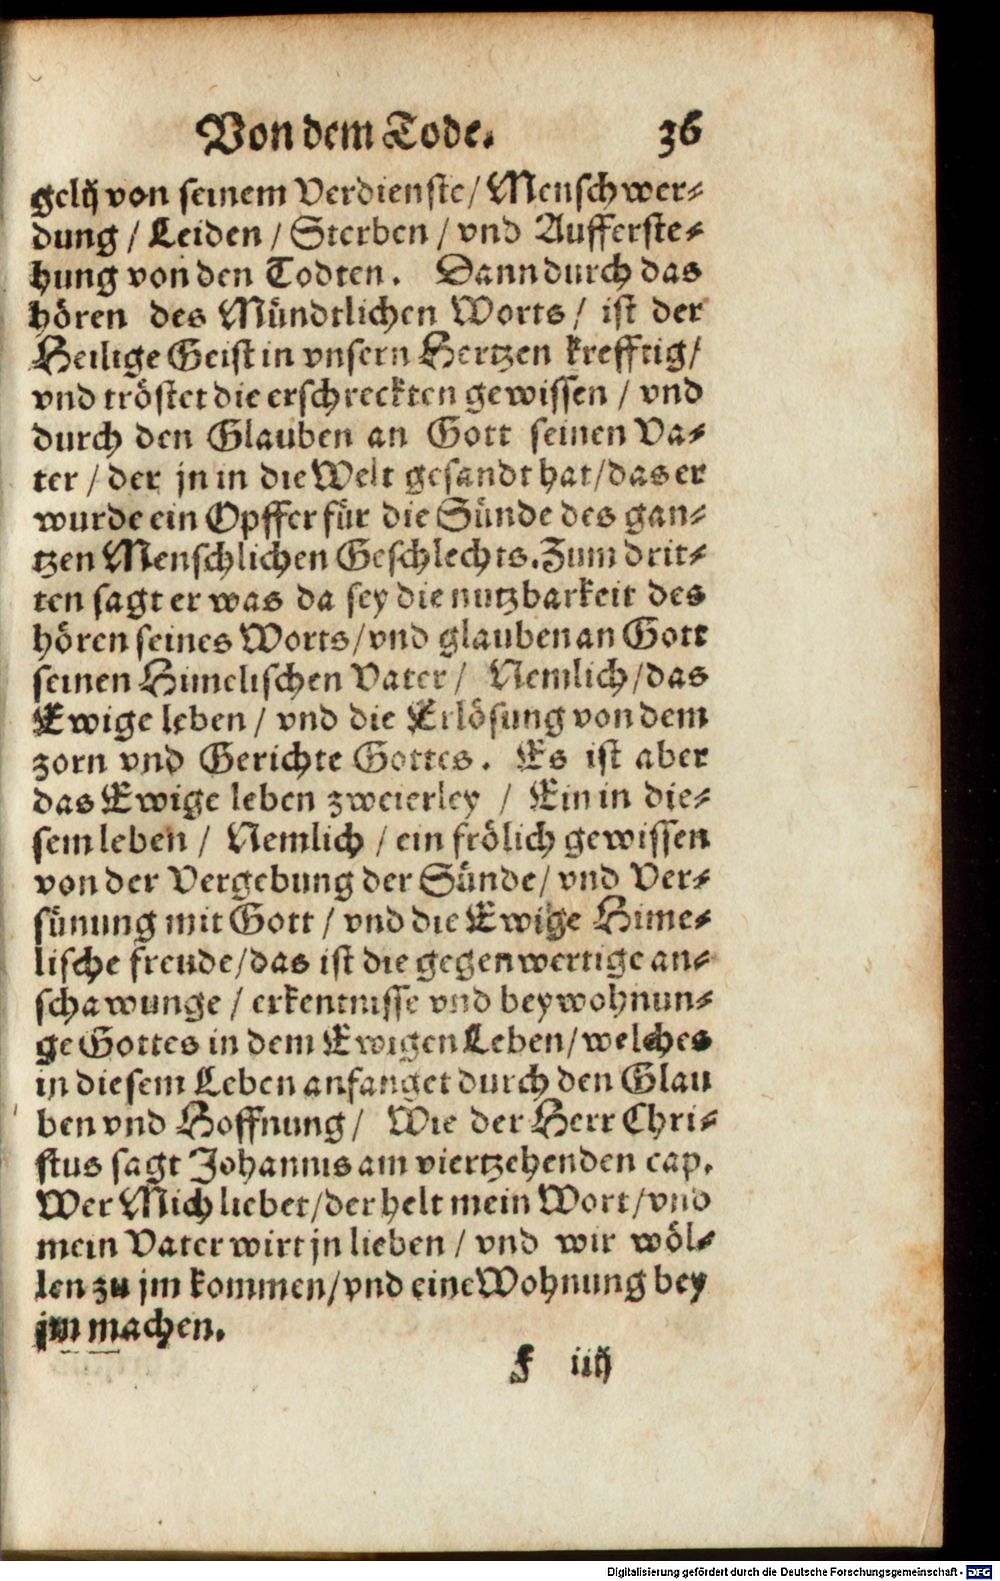 Von dem Tode. 36
gelij von seinem Verdienste/ Menschwer-
dung / Leiden / Sterben / vnd Aufferste-
hung von den Todten. Dann durch das
hören des Mündtlichen Worts / ist der
Heilige Geist in vnsern Hertzen krefftig/
vnd tröstet die erschreckten gewissen / vnd
durch den Glauben an Gott seinen Va-
ter / der jn in die Welt gesandt hat/das er
wurde ein Opffer für die Sünde des gan-
tzen Menschlichen Geschlechts. Zum drit-
ten sagt er was da sey die nutzbarkeit des
hören seines Worts/vnd glauben an Gott
seinen Himelischen Vater / Nemlich/das
Ewige leben / vnd die Erlösung von dem
zorn vnd Gerichte Gottes. Es ist aber
das Ewige leben zweierley / Ein in die-
sem leben / Nemlich / ein frölich gewissen
von der Vergebung der Sünde/ vnd Ver-
sünung mit Gott / vnd die Ewige Hime-
lische freude/das ist die gegenwertige an-
schawunge / erkentnisse vnd beywohnun-
ge Gottes in dem Ewigen Leben/welches
in diesem Leben anfanget durch den Glau
ben vnd Hoffnung / Wie der Herr Chri-
stus sagt Johannis am viertzehenden cap.
Wer Mich liebet/der helt mein Wort/vnd
mein Vater wirt jn lieben / vnd wir wöl-
len zu jm kommen/vnd eine Wohnung bey
jm machen.
F iiij
Digitalisierung gefördert durch die Deutsche Forschungsgemeinschaft - DFG